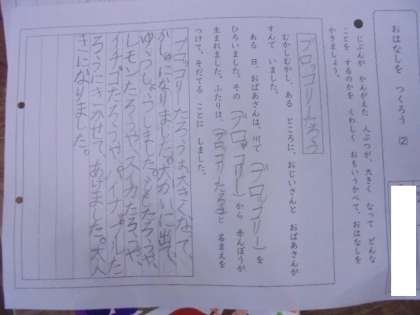 おはなしを つくろう ②
● じぶんが かんがえた 人ぶつが、大きく なって どんな
ことを するのかを くわしく おもいうかべて、おはなしを
かきましょう。
ブロッコリーたろう
むかしむかし、ある ところに、おじいさんと おばあさんが
すんで いました。
ある 日、おばあさんは、川で (ブロッコリー) を
ひろいました。その (ブロッコリー) から 赤んぼうが
生まれました。ふたりは、(ブロッコリーたろう) と 名まえを
つけて、そだてる ことに しました。
ブロッコリーたろうは大きくなって、
かしゅになりました。大かいに出て、
ゆうしょうしました。
レモンたろうや、スイカたろうや、
イチゴたろうや、パイナップルた
ろうにきかせて、あげました。大人
きになりました。